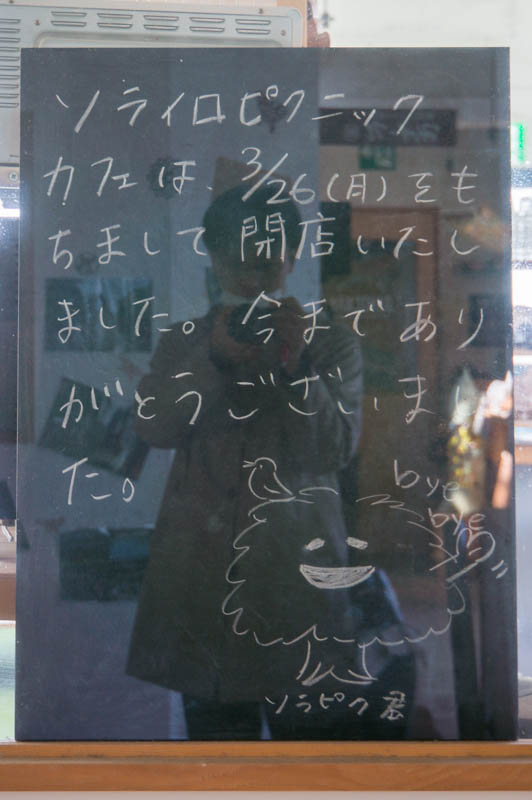 ソライロピクニック
カフェは、3/26(月)をも
ちまして閉店いたし
ました。今までであり
がとうございまし
た。
bye
bye
ソラピク君